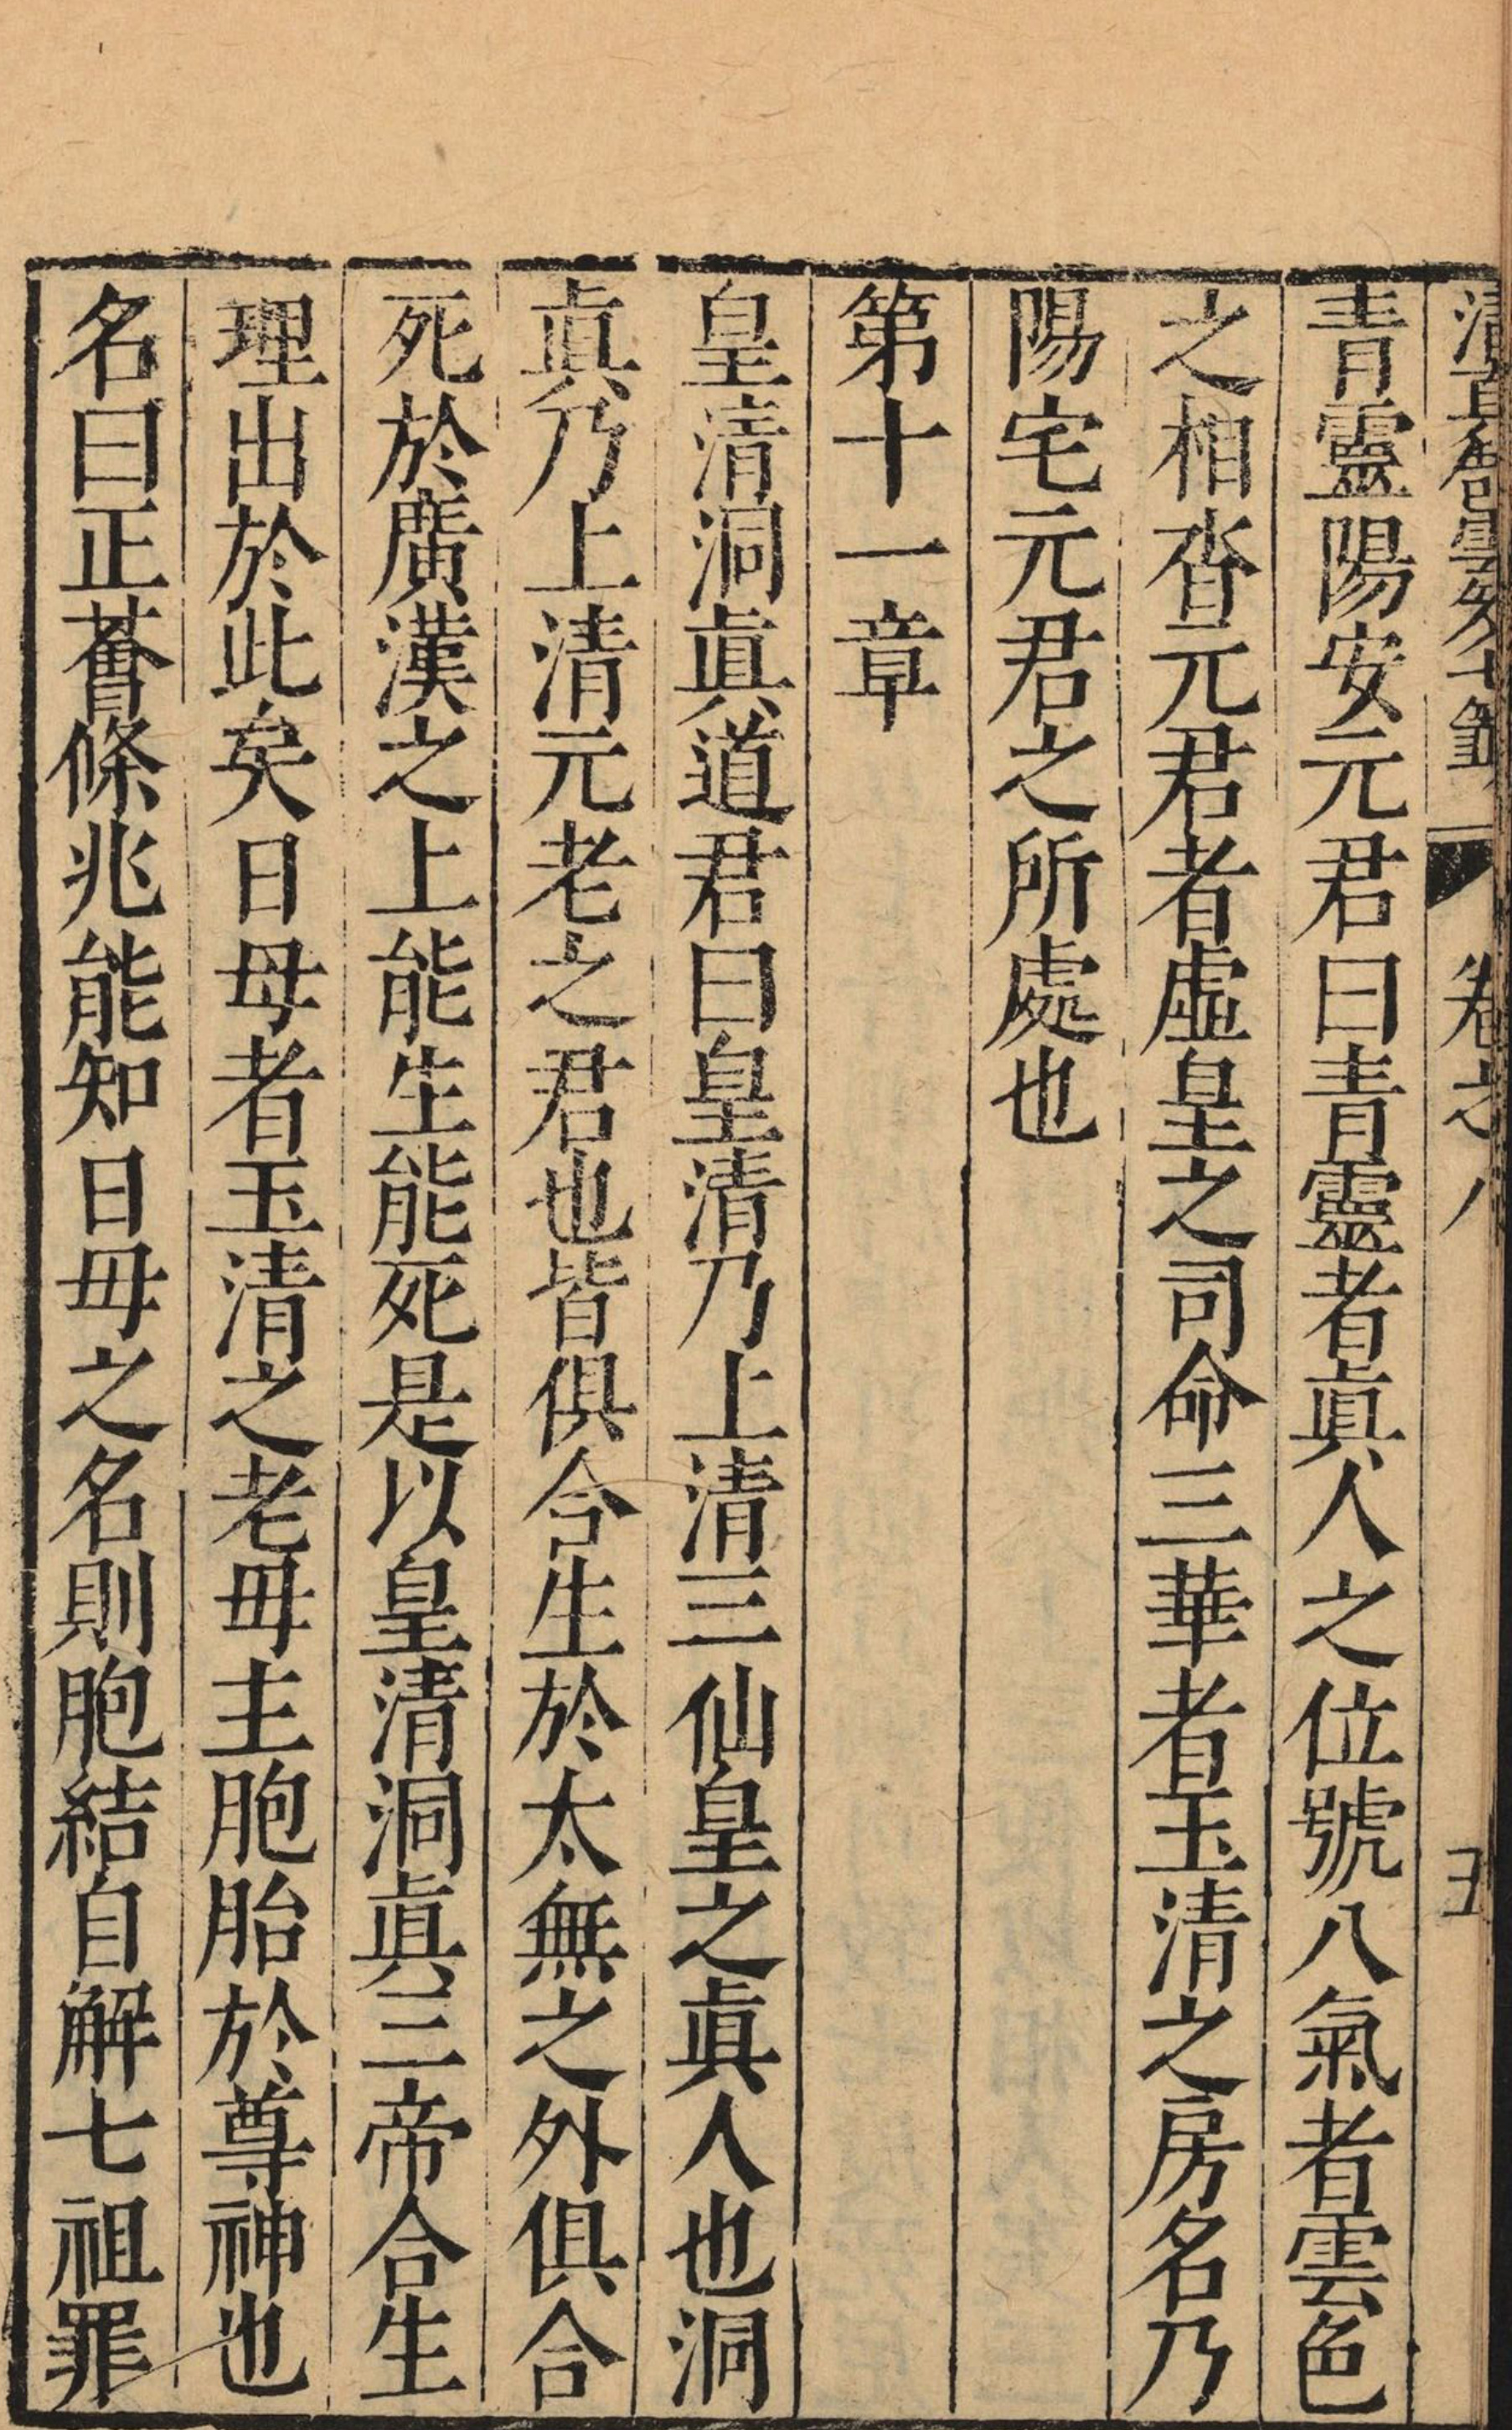 卷之八
五
青靈陽安元君曰青靈者眞人之位號八氣者雲色
之相沓元君者虛皇之司命三華者玉清之房名乃
陽宅元君之所處也
第十一章
皇清洞眞道君曰皇清乃上清三仙皇之眞人也洞
眞乃上清元老之君也皆俱合生於太無之外俱合
死於廣漢之上能生能死是以皇清洞眞三帝合生
理出於此矣日母者玉清之老母主胞胎於尊神也
名曰正薈條兆能知日母之名則胞結自解七祖罪